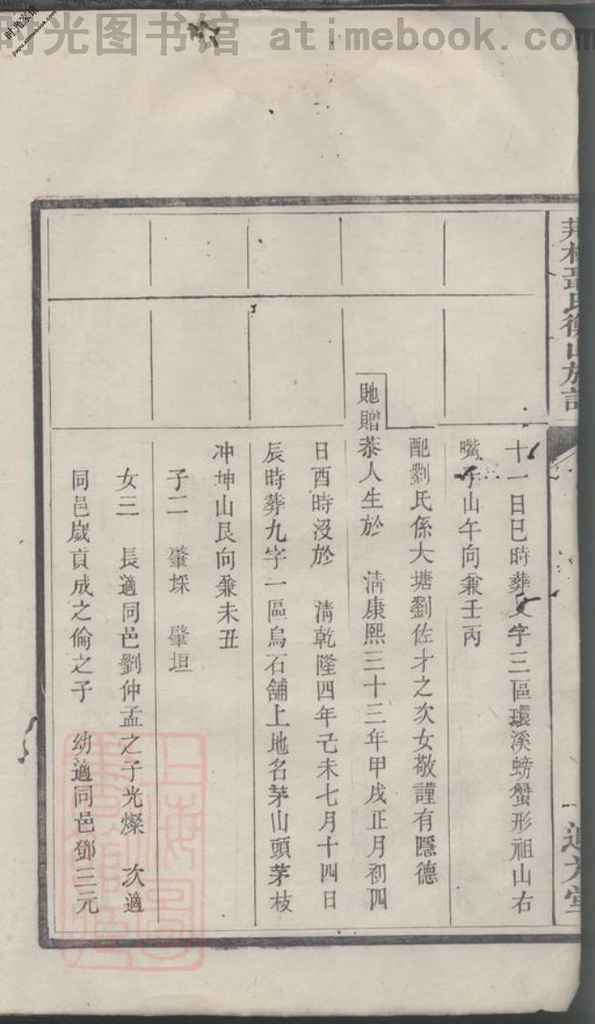 时光图书馆 atimebook.com
十一日巳時葬文字三區環溪螃蟹形祖山右
山午向兼壬丙
配劉氏係大塘劉佐才之次女敬謹有隱德
貤贈恭人生於 清康熙三十三年甲戌正月初四
日酉時沒於 清乾隆四年己未七月十四日
辰時葬九字一區烏石舖上地名茅山頭茅枝
冲坤山艮向兼未丑
子二 肇埰 肇垣
女三 長適同邑劉仲孟之子光燦 次適
同邑歲貢成之倫之子 幼適同邑鄧三元